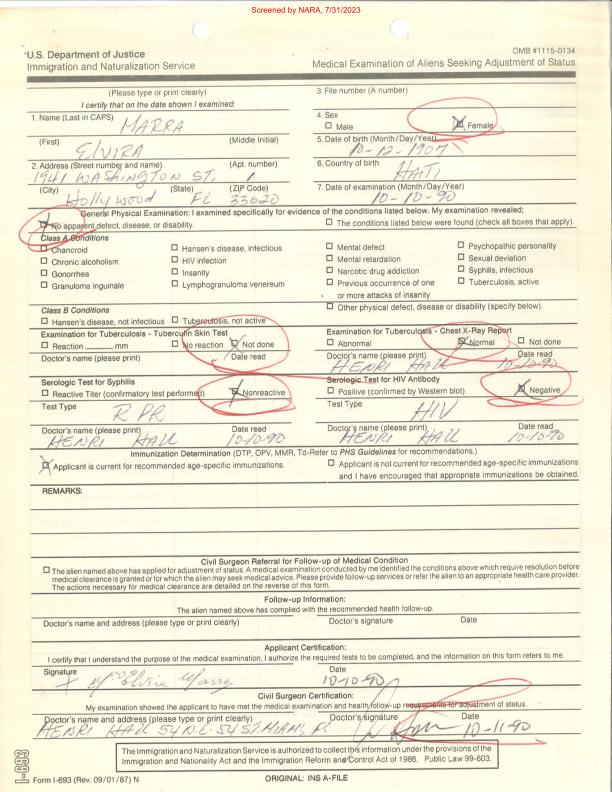 Screened by NARA, 7/31/2023
OMB #1115-0134
U.S. Department of Justice
Immigration and Naturalization Service Medical Examination of Aliens Seeking Adjustment of Status
(Please type or print clearly)
I certify that on the date shown I examined:
3. File number (A number)
1. Name (Last in CAPS) MARRA
4. Sex
☐ Male ☒ Female
(First) ELVIRA (Middle Initial)
5. Date of birth (Month/Day/Year) 10-12-1907
2. Address (Street number and name) (Apt. number)
1941 WASHINGTON ST. 1
6. Country of birth HAITI
(City) (State) (ZIP Code)
Hollywood FL 33020
7. Date of examination (Month/Day/Year)
10-10-90
General Physical Examination: I examined specifically for evidence of the conditions listed below. My examination revealed;
☒ No apparent defect, disease, or disability. ☐ The conditions listed below were found (check all boxes that apply).
Class A Conditions
☐ Chancroid ☐ Hansen's disease, infectious ☐ Mental defect ☐ Psychopathic personality
☐ Chronic alcoholism ☐ HIV infection ☐ Mental retardation ☐ Sexual deviation
☐ Gonorrhea ☐ Insanity ☐ Narcotic drug addiction ☐ Syphilis, infectious
☐ Granuloma inguinale ☐ Lymphogranuloma venereum ☐ Previous occurrence of one or more attacks of insanity ☐ Tuberculosis, active
Class B Conditions
☐ Hansen's disease, not infectious ☐ Tuberculosis, not active ☐ Other physical defect, disease or disability (specify below).
Examination for Tuberculosis - Tuberculin Skin Test
☐ Reaction mm ☐ No reaction ☒ Not done
Doctor's name (please print) Date read
Examination for Tuberculosis - Chest X-Ray Report
☐ Abnormal ☒ Normal ☐ Not done
Doctor's name (please print) Date read
HENRI HALL 10-10-90
Serologic Test for Syphilis
☐ Reactive Titer (confirmatory test performed) ☒ Nonreactive
Test Type RPR
Doctor's name (please print) Date read
HENRI HALL 10-10-90
Serologic Test for HIV Antibody
☐ Positive (confirmed by Western blot) ☒ Negative
Test Type HIV
Doctor's name (please print) Date read
HENRI HALL 10-10-90
Immunization Determination (DTP, OPV, MMR, Td-Refer to PHS Guidelines for recommendations.)
☒ Applicant is current for recommended age-specific immunizations.
☐ Applicant is not current for recommended age-specific immunizations
and I have encouraged that appropriate immunizations be obtained.
REMARKS:
Civil Surgeon Referral for Follow-up of Medical Condition
☐ The alien named above has applied for adjustment of status. A medical examination conducted by me identified the conditions above which require resolution before
medical clearance is granted or for which the alien may seek medical advice. Please provide follow-up services or refer the alien to an appropriate health care provider.
The actions necessary for medical clearance are detailed on the reverse of this form.
Follow-up Information:
The alien named above has complied with the recommended health follow-up.
Doctor's name and address (please type or print clearly) Doctor's signature Date
Applicant Certification:
I certify that I understand the purpose of the medical examination, I authorize the required tests to be completed, and the information on this form refers to me.
Signature Date
10-10-90
Civil Surgeon Certification:
My examination showed the applicant to have met the medical examination and health follow-up requirements for adjustment of status.
Doctor's name and address (please type or print clearly) Doctor's signature Date
HENRI HALL 54 N.E. 54 ST. MIAMI, FL 10-11-90
The Immigration and Naturalization Service is authorized to collect this information under the provisions of the
Immigration and Nationality Act and the Immigration Reform and Control Act of 1986, Public Law 99-603.
Form I-693 (Rev. 09/01/87) N ORIGINAL: INS A-FILE